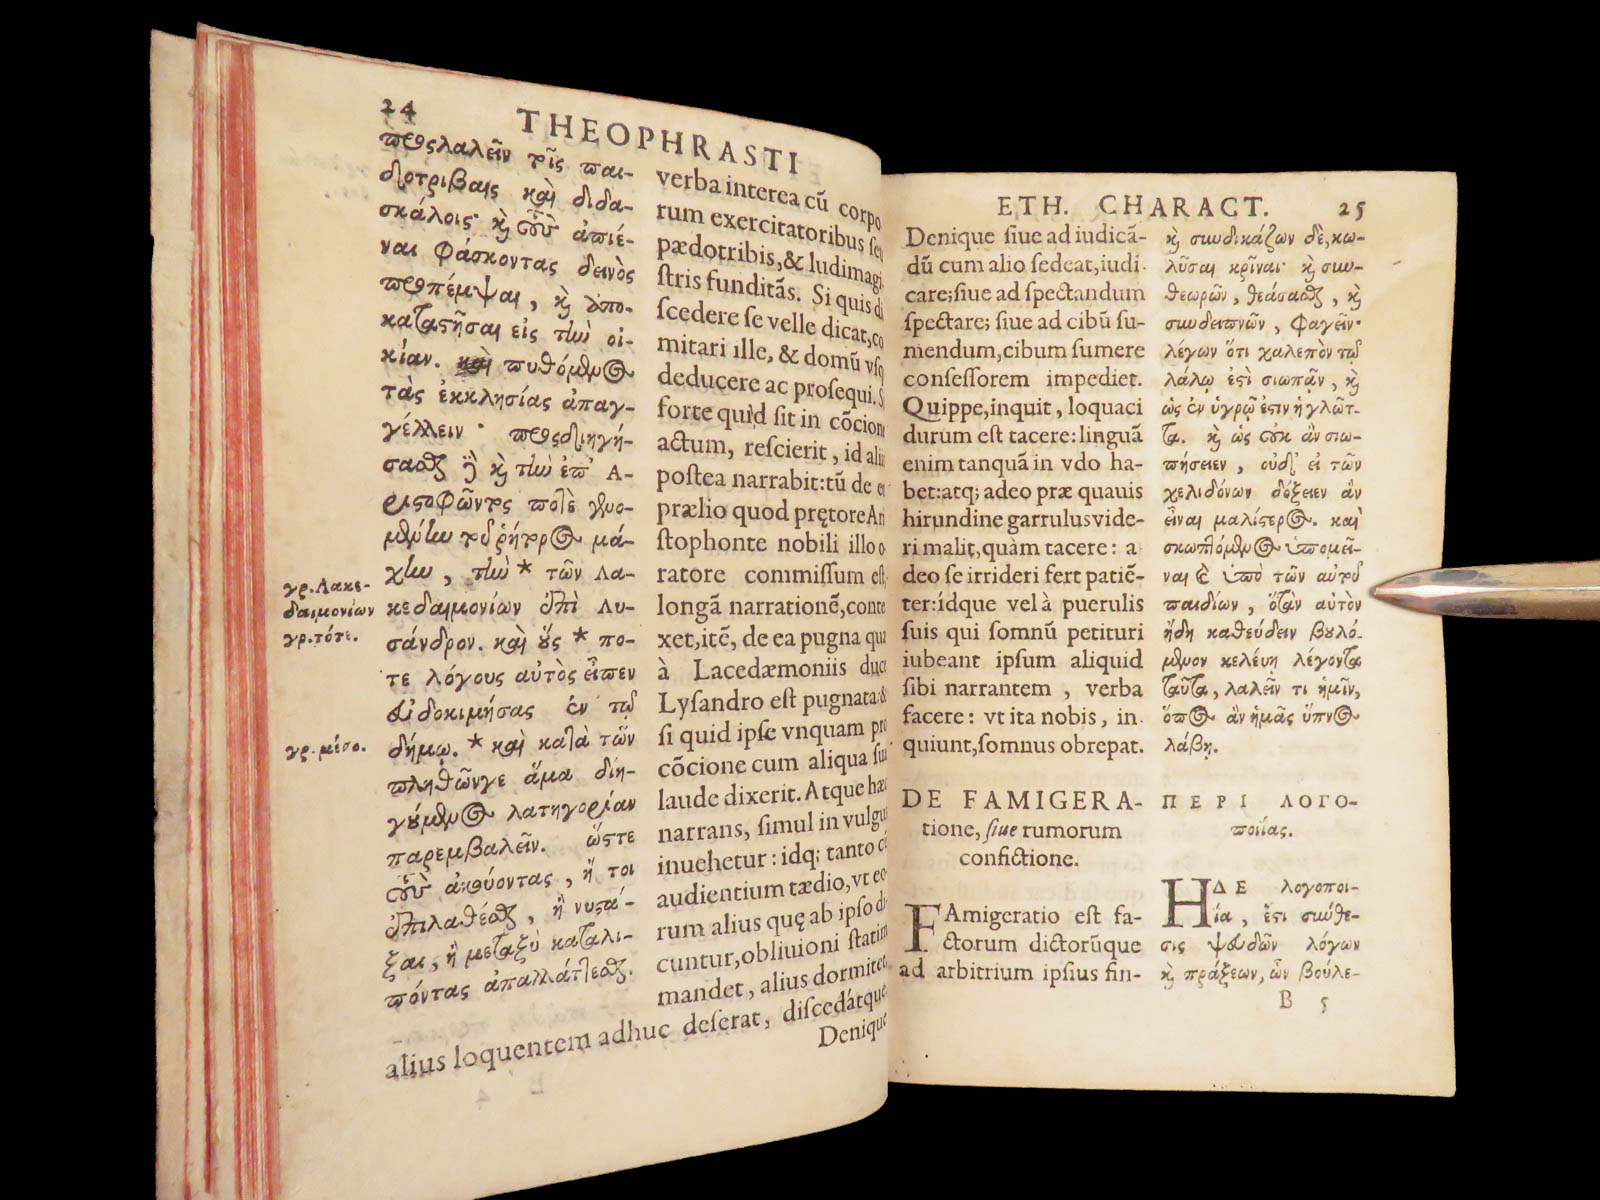 24
THEOPHRASTI
προσλαλεῖν τοῖς παι-
δοτρίβαις καὶ διδα-
σκάλοις· καὶ τοὺς ἀπιέ-
ναι φάσκοντας δεινὸς
προπέμψαι, καὶ ἀπο-
καταστῆσαι εἰς τὴν οἰ-
κίαν. καὶ πυθόμενος
τὰς ἐκκλησίας ἀπαγ-
γέλλειν· προσδιηγή-
σασθαι δὲ καὶ τὴν ἐπ' Ἀ-
ριστοφῶντος ποτὲ γενο-
μένην τοῦ ῥήτορος μά-
χην, τὴν * τῶν Λα-
κεδαιμονίων ἐπὶ Λυ-
σάνδρου. καὶ οὓς * πο-
τε λόγους αὐτὸς εἶπεν
εὐδοκιμήσας ἐν τῷ
δήμῳ. * καὶ κατὰ τῶν
πληθῶνγε ἅμα διη-
γούμενος κατηγορίαν
παρεμβαλεῖν. ὥστε
τοὺς ἀκούοντας, ἤ τοι
ἐπιλαθέσθαι, ἢ νυστά-
ξαι, ἢ μεταξὺ καταλι-
πόντας ἀπαλλάττεσθαι.
γρ. Λακε-
δαιμονίων
γρ. τότε.
γρ. μέσο.
verba interea cū corpo
rum exercitatoribus ſeu
pædotribis, & ludimagi
ſtris funditās. Si quis di
ſcedere ſe velle dicat, co
mitari ille, & domū vſq
deducere ac proſequi. Si
forte quid ſit in cōcione
actum, reſcierit, id aliis
poſtea narrabit: tū de eo
prælio quod prętore Ari
ſtophonte nobili illo o
ratore commiſſum eſt,
longā narrationē, conte
xet, itē, de ea pugna quæ
à Lacedæmoniis duce
Lyſandro eſt pugnata: &
ſi quid ipſe vnquam pro
cōcione cum aliqua ſui
laude dixerit. Atque hæc
narrans, ſimul in vulgus
inuehetur: idq; tanto cū
audientium tædio, vt eo
rum alius quę ab ipſo di
cuntur, obliuioni ſtatim
mandet, alius dormitet,
alius loquentem adhuc deſerat, diſcedátque.
Denique
ETH. CHARACT.
25
Denique ſiue ad iudicā-
dū cum alio ſedeat, iudi-
care; ſiue ad ſpectandum
ſpectare; ſiue ad cibū ſu-
mendum, cibum ſumere
conſeſſorem impediet.
Quippe, inquit, loquaci
durum eſt tacere: linguā
enim tanquā in vdo ha-
bet: atq; adeo præ quauis
hirundine garrulus vide-
ri malit, quàm tacere: a
deo ſe irrideri fert patiē-
ter: ídque vel à puerulis
ſuis qui ſomnū petituri
iubeant ipſum aliquid
ſibi narrantem, verba
facere: vt ita nobis, in-
quiunt, ſomnus obrepat.
καὶ συνδικάζων δὲ, κω-
λῦσαι κρῖναι· καὶ συν-
θεωρῶν, θεάσασθαι, καὶ
συνδειπνῶν, φαγεῖν·
λέγων ὅτι χαλεπὸν τῷ
λάλῳ ἐστὶ σιωπᾷν, καὶ
ὡς ἐν ὑγρῷ ἐστιν ἡ γλῶτ-
τα. καὶ ὡς οὐκ ἂν σιω-
πήσειεν, οὐδ' εἰ τῶν
χελιδόνων δόξειεν ἂν
εἶναι λαλίστερος. καὶ
σκωπτόμενος ὑπομεῖ-
ναι καὶ ὑπὸ τῶν αὑτοῦ
παιδίων, ὅταν αὐτὸν
ἤδη καθεύδειν βουλό-
μενον κελεύῃ λέγοντα
ταῦτα, λαλεῖν τι ἡμῖν,
ὅπως ἂν ἡμᾶς ὕπνος
λάβῃ.
DE FAMIGERA-
tione, ſiue rumorum
confictione.
FAmigeratio eſt fa-
ctorum dictorūque
ad arbitrium ipſius fin-
ΠΕΡΙ ΛΟΓΟ-
ποιΐας.
ΗΔΕ λογοποι-
ία, ἔστι σύνθε-
σις ψευδῶν λόγων
καὶ πράξεων, ὧν βούλε-
B 5